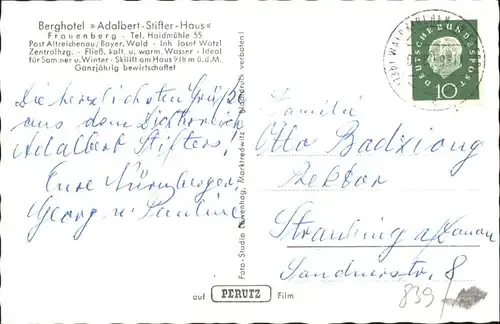 Berghotel »Adalbert-Stifter-Haus«
Frauenberg - Tel. Haidmühle 55
Post Altreichenau/Bayer. Wald - Inh. Josef Watzl
Zentralhzg. - Fließ. kalt. u. warm. Wasser - Ideal
für Sommer u. Winter - Skilift am Haus 918 m ü.d.M.
Ganzjährig bewirtschaftet
Die herzlichsten Grüße
aus dem
Adalbert Stifters!
Eure Nürnberger
Georg u. Pauline
Foto-Studio Löwenhag, Marktredwitz - Nachdruck verboten!
auf PERUTZ Film
DEUTSCHE BUNDESPOST
10
Familie
Otto Badziong
Rektor
Straubing a/Donau
Landnerstr. 8
839